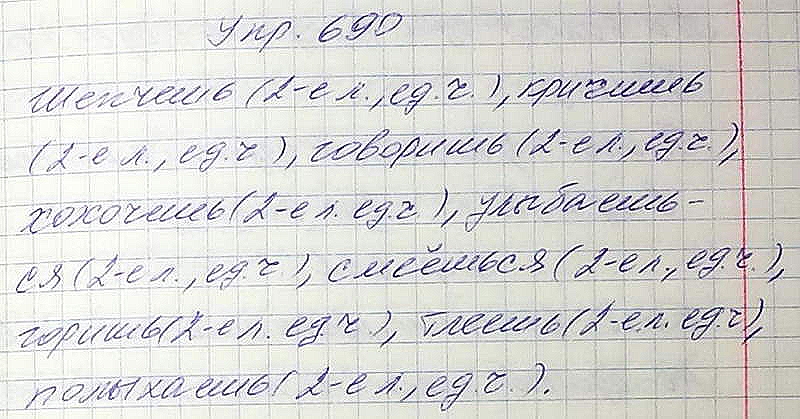 Упр. 690
Шепчешь (2-е л., ед.ч.), кричишь
(2-е л., ед.ч.), говоришь (2-е л., ед.ч.),
хохочешь (2-е л. ед.ч), улыбаешь-
ся (2-е л., ед.ч.), смеёшься (2-е л., ед.ч.),
горишь (2-е л. ед.ч.), тлеешь (2-е л. ед.ч),
полыхаешь (2-е л., ед.ч.).